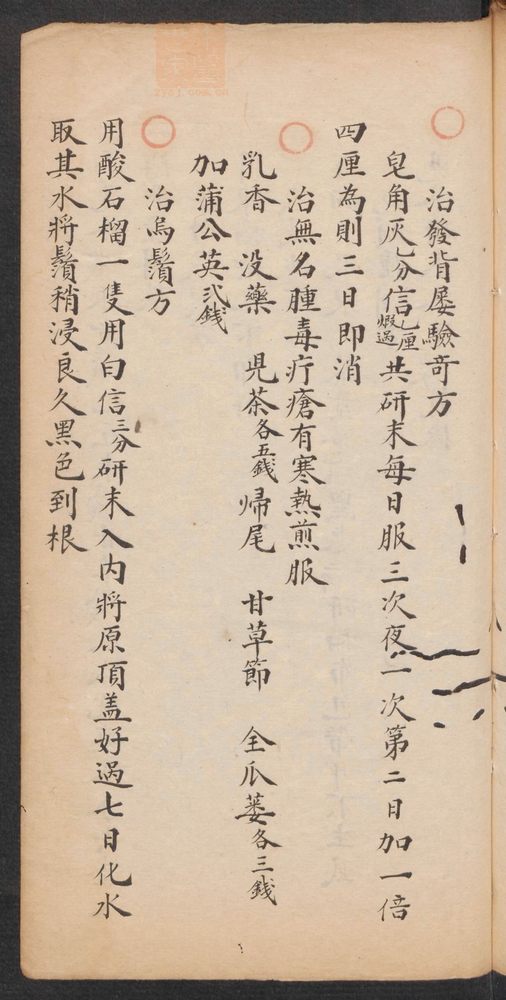 治發背屡驗奇方
皂角灰乙分信煅過乙厘共研末每日服三次夜一次第二日加一倍
四厘為則三日即消
治無名腫毒疔瘡有寒熱煎服
乳香 没藥 児茶各五錢 帰尾 甘草節 全瓜蔞各三錢
加蒲公英弐錢
治烏鬚方
用酸石榴一隻用白信三分研末入内將原頂盖好過七日化水
取其水將鬚稍浸良久黑色到根